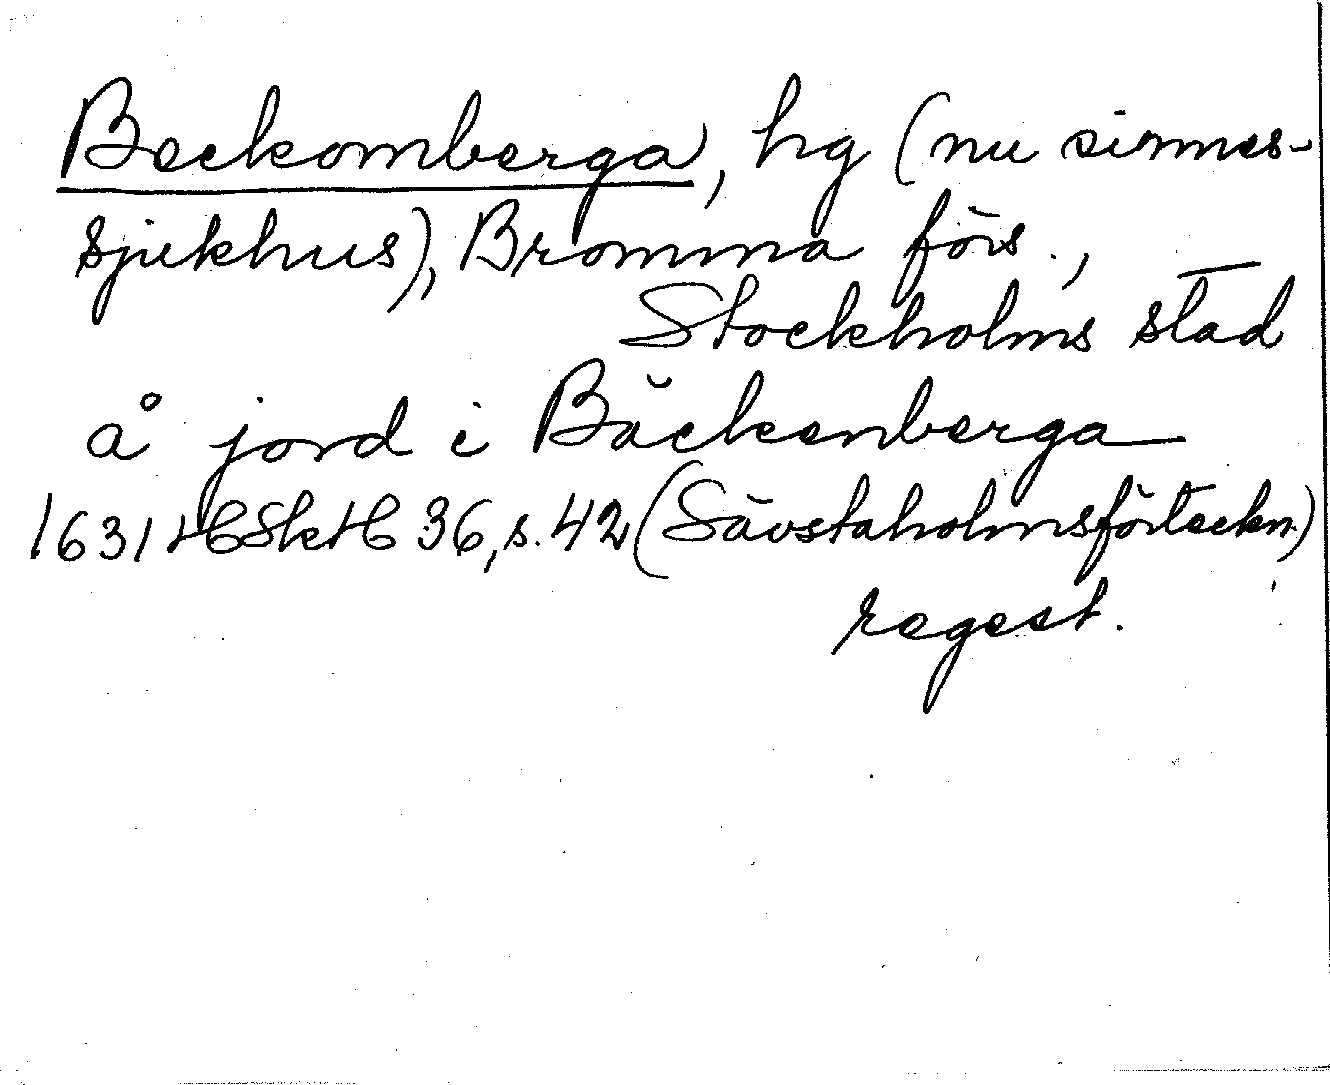 Beckomberga, hg (nu sinnes-
sjukhus), Bromma förs.,
Stockholms stad
å jord i Bäckenberga
1631 HSkH 36, s. 42 (Sävstaholmsförteckn.)
regest.